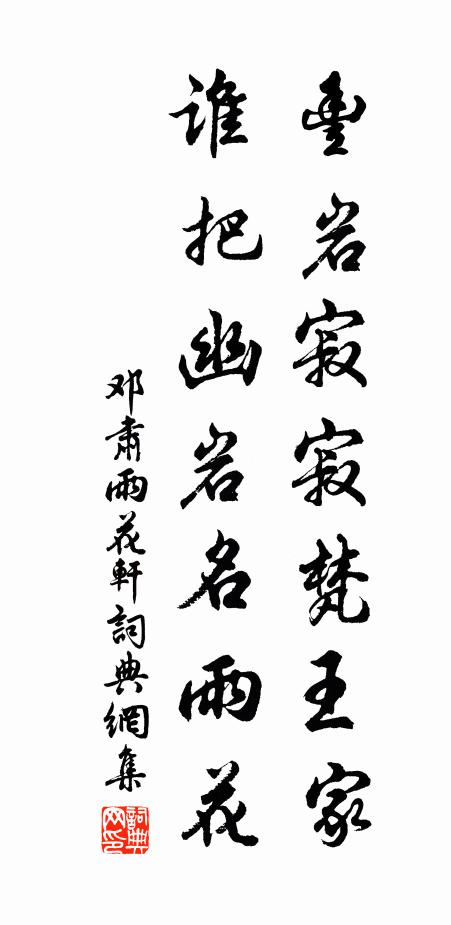 豊岩寂寂梵王家
誰把幽岩名雨花
邓肅雨花軒詞典網集
詞典网印